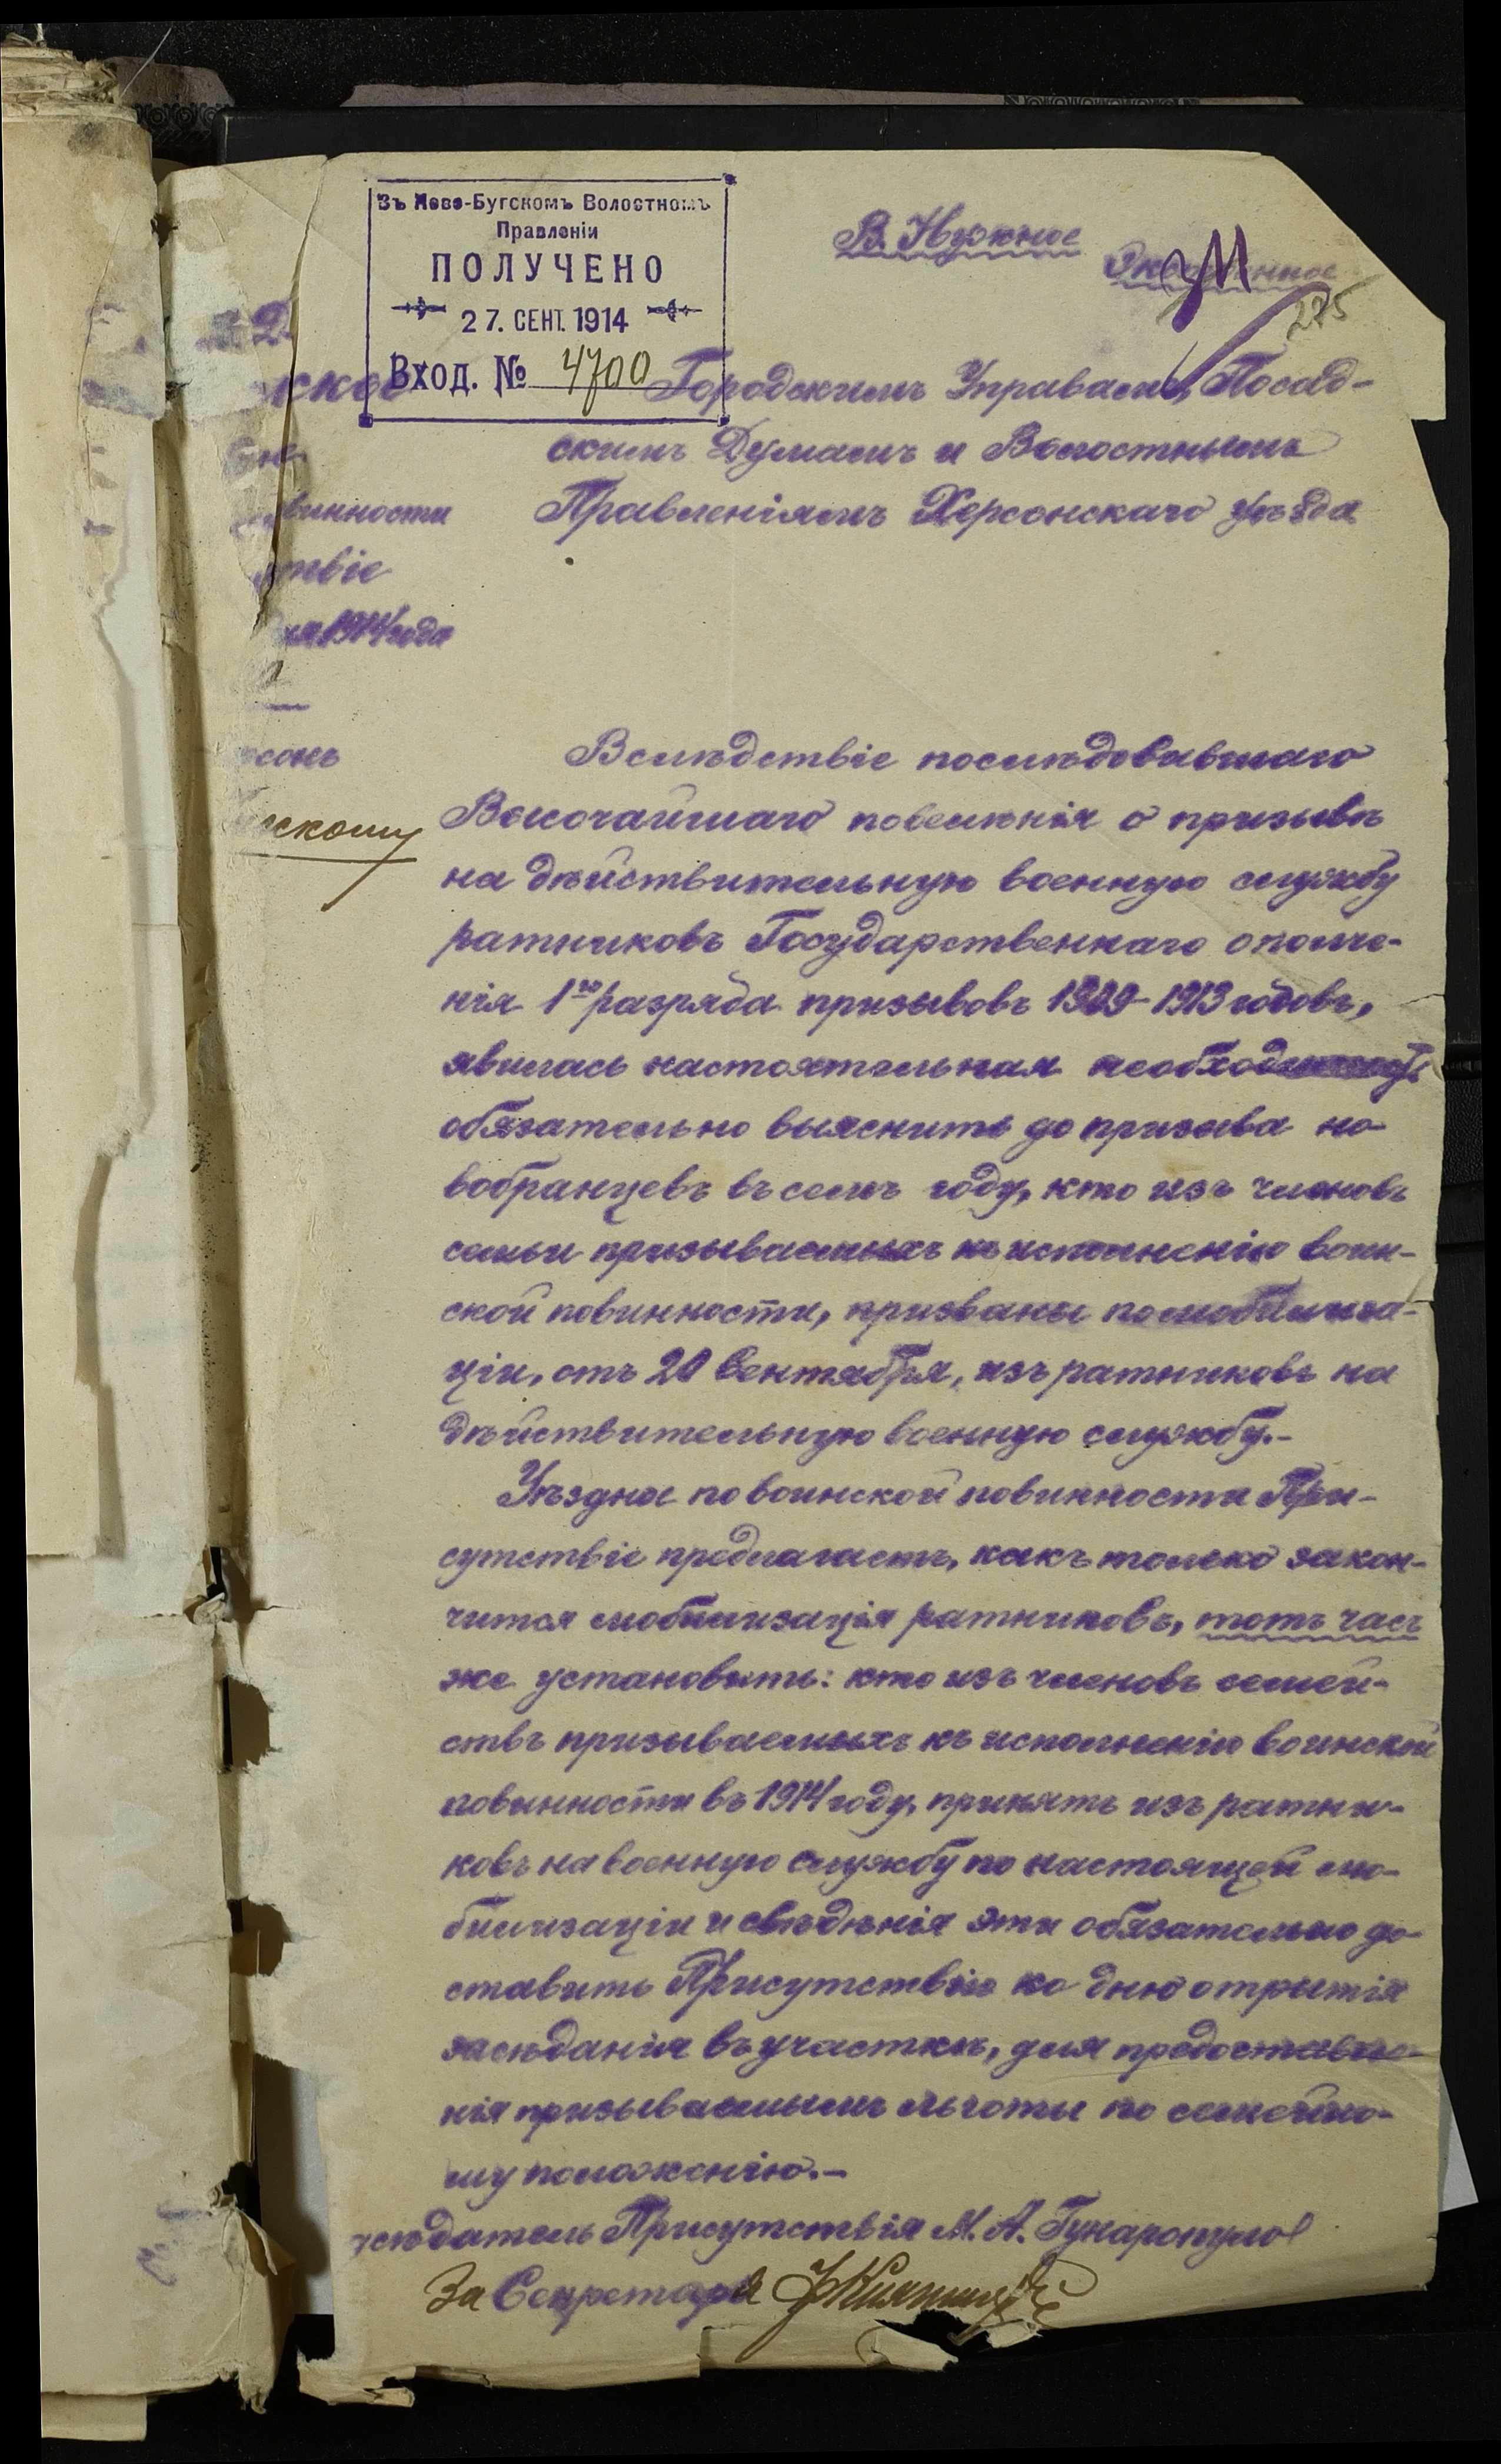 Въ Ново-Бугскомъ Волостномъ
Правленіи
ПОЛУЧЕНО
27. СЕНТ. 1914
Вход. № 4700
В. Нужное
275
ское
Городскимъ Управамъ, Посад-
скимъ Думамъ и Волостнымъ
винности
Правленіямъ Херсонскаго уѣзда
ствіе
1914 года
сонъ
скому
Вслѣдствіе послѣдовавшаго
Высочайшаго повелѣнія о призывѣ
на дѣйствительную военную службу
ратниковъ Государственнаго ополче-
нія 1го разряда призывовъ 1909-1913 годовъ,
явилась настоятельная необходимость
обязательно выяснить до призыва но-
вобранцевъ въ семъ году, кто изъ членовъ
семьи призываемыхъ къ исполненію воин-
ской повинности, призваны по мобилиза-
ціи, отъ 20 Сентября, изъ ратниковъ на
дѣйствительную военную службу.-
Уѣздное по воинской повинности При-
сутствіе предлагаетъ, какъ только закон-
чится мобилизація ратниковъ, тотъ часъ
же установить: кто изъ членовъ семей-
ствъ призываемыхъ къ исполненію воинской
повинности въ 1914 году, принятъ изъ ратни-
ковъ на военную службу по настоящей мо-
билизаціи и свѣдѣнія эти обязательно до-
ставить Присутствію ко дню открытія
засѣданія въ участкѣ, для предоставле-
нія призываемымъ льготы по семейно-
му положенію.-
сѣдатель Присутствія М. А. Гунаропуло
За Секретаря